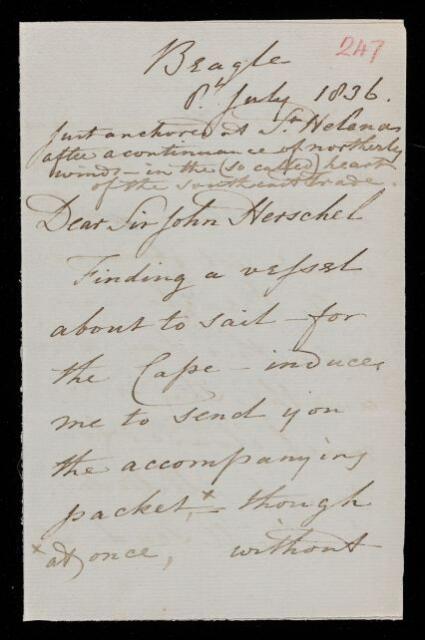 247
Beagle
8th July 1836.
Just anchored at St Helena
after a continuance of northerly
winds – in the (so called) heart
of the southeast trade.
Dear Sir John Herschel
Finding a vessel
about to sail – for
the Cape – induces
me to send you
the accompanying
packet,x – though
x at once, without